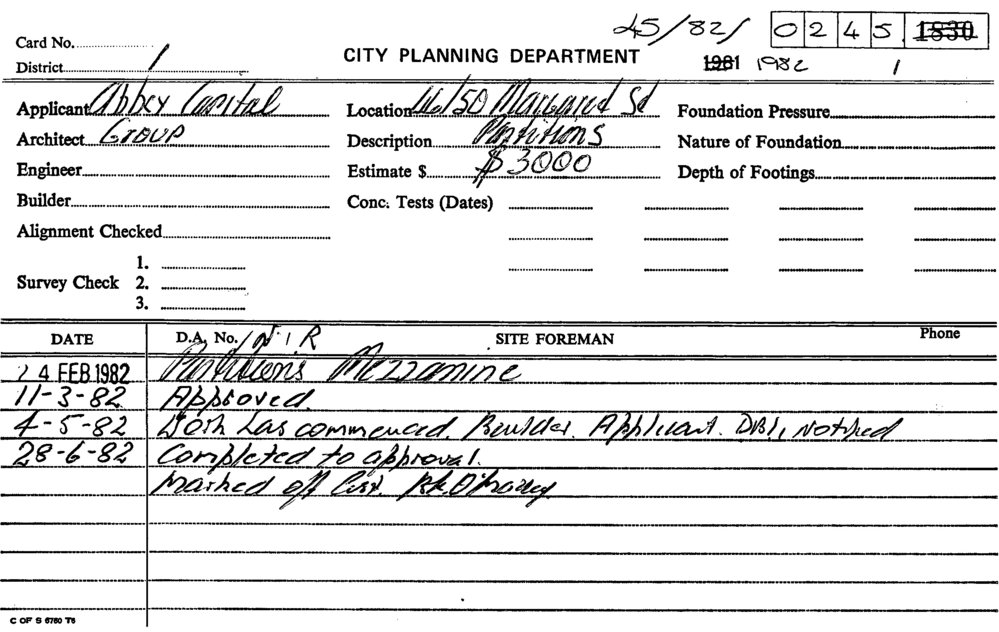 45/82/ 0 2 4 5 1830
Card No.
CITY PLANNING DEPARTMENT
1981 1982 1
District 1
Applicant Abbey Capital Location 46/50 Margaret St Foundation Pressure
Architect Group Description Partitions Nature of Foundation
Engineer Estimate $ $3000 Depth of Footings
Builder Conc. Tests (Dates)
Alignment Checked
1.
Survey Check 2.
3.
DATE D.A. No. / N I R SITE FOREMAN Phone
24 FEB 1982 Partitions Mezzanine
11-3-82 Approved.
4-5-82 Work has commenced. Builder. Applicant. DBI, Notified
28-6-82 Completed to approval.
Marked off List.
C OF S 6760 T6